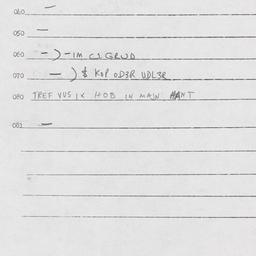 060 —
050 —
060 -) - IM CJ GRUD
070 — ) $ KOP OD3R UDL3R
080 TREF VUS IK HOB IN MAJN HANT
083 —